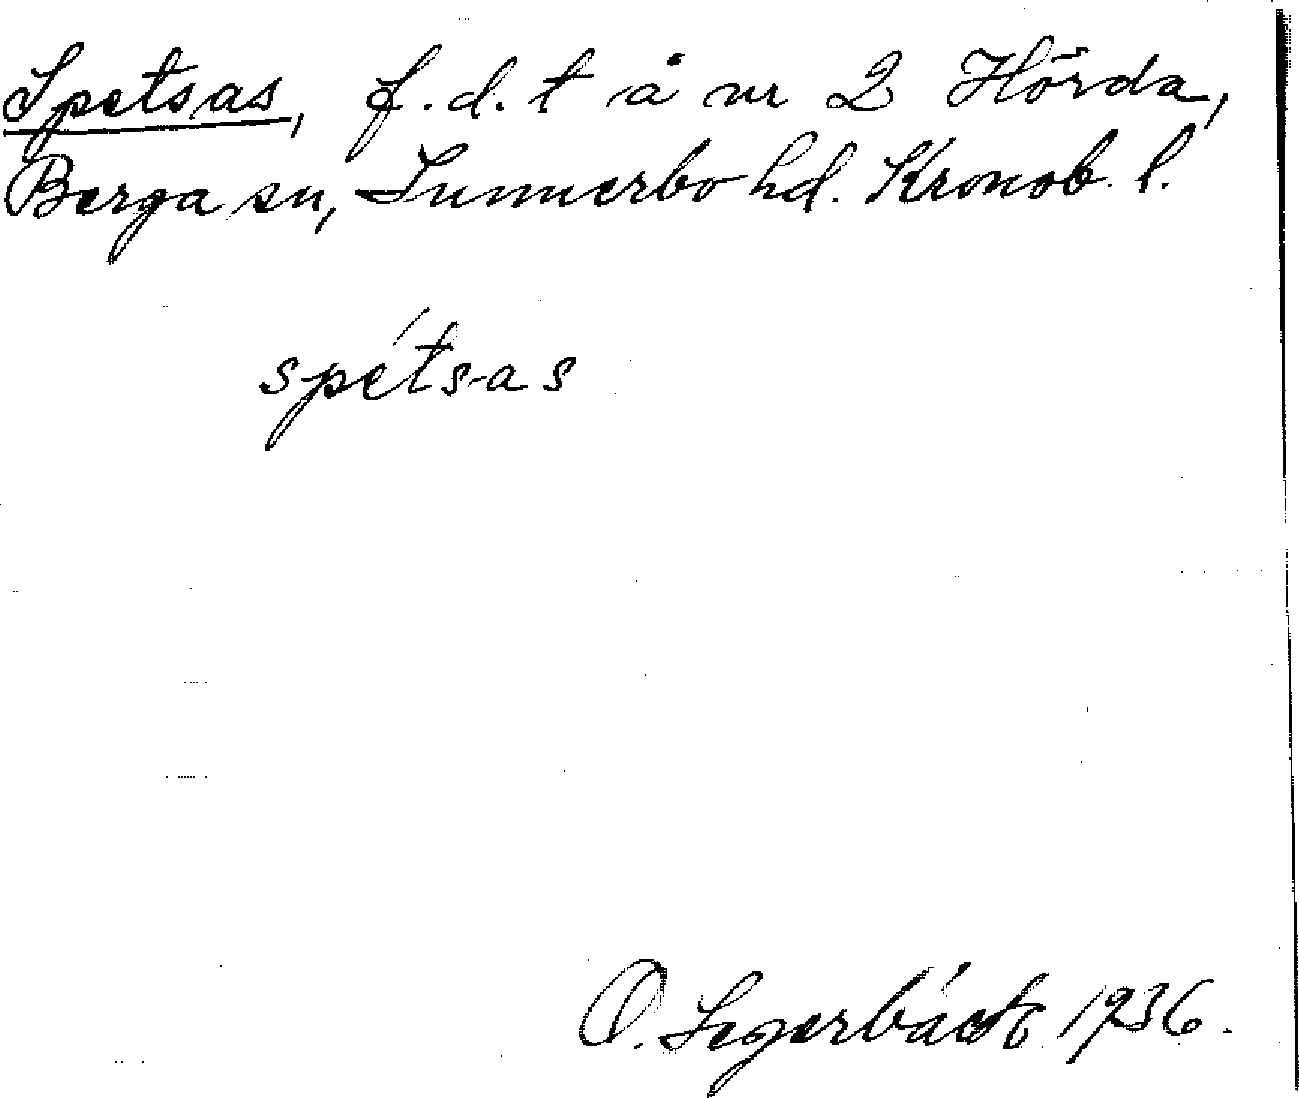 Spetsas, f.d. t å nr 2 Hörda,
Berga sn, Sunnerbo hd. Kronob. l.
spétsas
O. Segerbäck 1936.